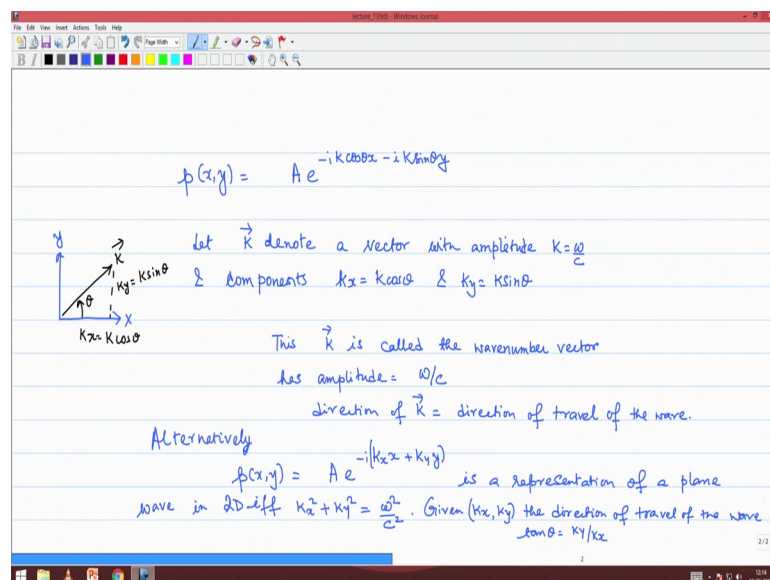 lecture_13feb - Windows Journal
File Edit View Insert Actions Tools Help
Page Width
B I
p(x,y) = A e^{-i k cosθx - i k sinθy}
Let \vec{K} denote a vector with amplitude K = ω/c
& components kx = k cosθ & ky = k sinθ
y
\vec{K}
Ky = K sinθ
θ
x
Kx = K cosθ
This \vec{K} is called the wavenumber vector
has amplitude = ω/c
direction of \vec{K} = direction of travel of the wave.
Alternatively
p(x,y) = A e^{-i(Kx x + Ky y)} is a representation of a plane
wave in 2D iff Kx² + Ky² = ω²/c². Given (Kx, Ky) the direction of travel of the wave
tanθ = Ky/Kx
2/2
2
12:14